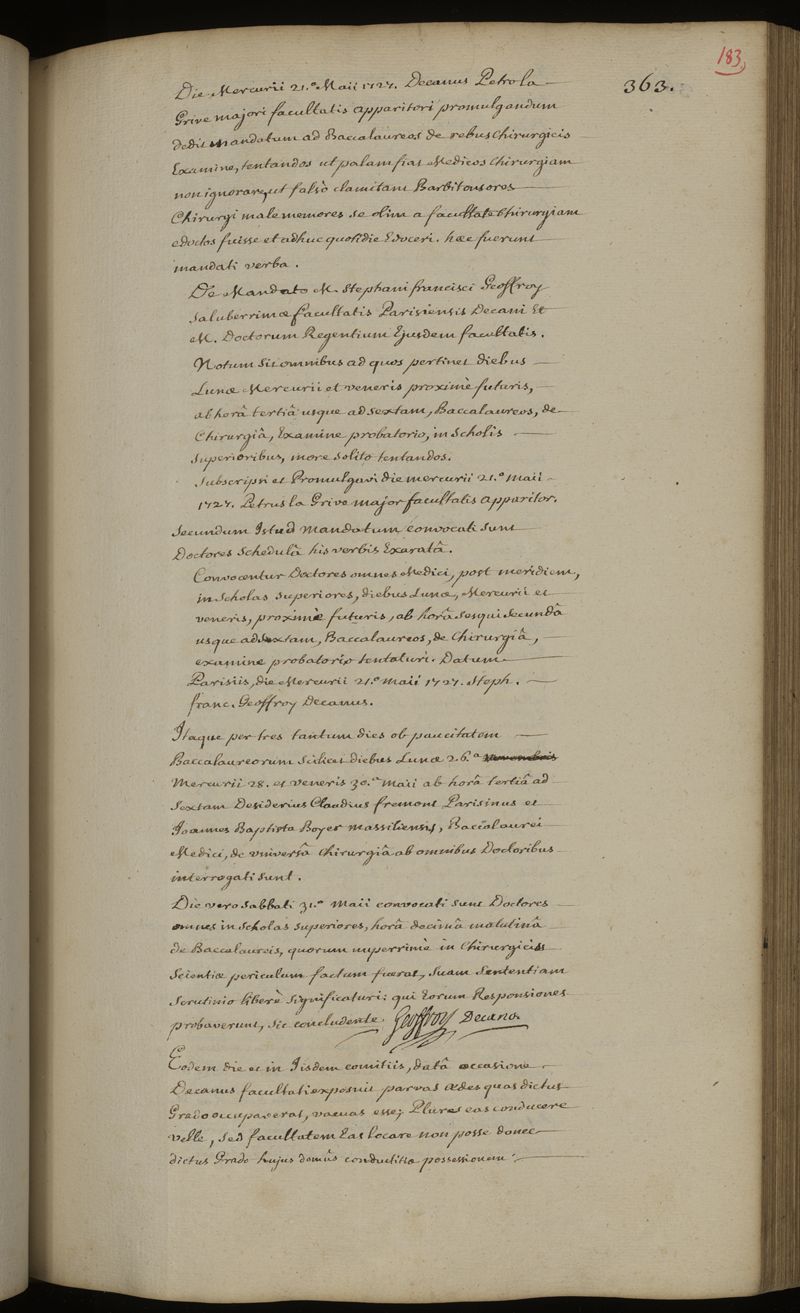 183
363.
Die Mercurii 21.º Maii 1727. Decanus Petro la
Grive majori facultatis apparitori promulgandum
dedit mandatum ad Baccalaureos de rebus chirurgicis
Examine, tentandos ut palam fiat Medicos chirurgiam
non ignorare, ut falsò clamitant Barbitonsores
Chirurgi male memores se olim a facultate Chirurgiam
edoctos fuisse et adhuc quotidie Edoceri. hæc fuerunt
mandati verba.
De Mandato M. Stephani francisci Geoffroy
saluberrimæ facultatis Parisiensis Decani Et
M. Doctorum Regentium Ejusdem facultatis.
Notum sit omnibus ad quos pertinet diebus
Lunæ Mercurii et veneris proximè futuris,
ab horâ tertiâ usque ad sextam, Baccalaureos, de
Chirurgiâ, Examine probatorio, in Scholis
superioribus, more solito tentandos.
Subscripsi et Promulgavi die mercurii 21.º maii
1727. Petrus la Grive major facultatis apparitor.
Secundum Istud mandatum convocati sunt
Doctores Schedulâ his verbis Exaratâ.
Convocentur Doctores omnes Medici, post meridiem,
in Scholas superiores, diebus Lunæ, Mercurii et
veneris, proximè futuris, ab horâ sesqui secundâ
usque ad sextam, Baccalaureos, de Chirurgiâ,
examine probatorio tentaturi. Datum
Parisiis, die Mercurii 21.º maii 1727. Steph.
franc. Geoffroy Decanus.
Itaque per tres tantum dies ob paucitatem
Baccalaureorum scilicet diebus Lunæ 26.ª
Mercurii 28. et veneris 30.ª maii ab horâ tertiâ ad
sextam Desiderius Claudius fremont Parisinus et
Joannes Baptista Boyer massiliensis, Baccalaurei
Medici, de universâ chirurgiâ ab omnibus Doctoribus
interrogati sunt.
Die vero sabbati 31.ª maii convocati sunt Doctores
omnes in Scholas superiores, horâ decimâ matutinâ
de Baccalaureis, quorum nuperrimè in Chirurgicis
scientiæ periculum factum fuerat, suam sententiam
scrutinio liberè significaturi; qui Eorum Responsiones
probaverunt, sic concludente. Geoffroy Decano.
Eodem die et in Iisdem comitiis, datâ occasione
Decanus facultati exposuit parvas ædes quas dictus
Grado occupaverat, vacuas esse; Plures eas conducere
velle, sed facultatem Eas locare non posse donec
dictus Grado hujus domûs conductitiæ possessionem